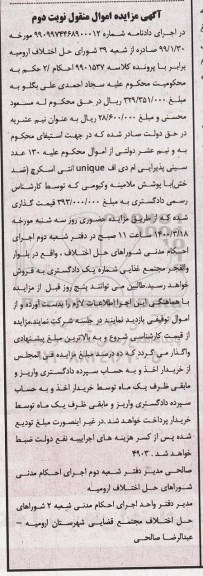 آگهی مزایده اموال منقول نوبت دوم
در اجرای دادنامه شماره ۹۹۰۹۹۷۴۴۶۸۹۰۰۰۱۲ مورخه
۹۹/۱/۳۰ صادره از شعبه ۳۹ شورای حل اختلاف ارومیه
برابر با پرونده کلاسه ۹۹۰۱۵۳۷ احکام /۲ حکم به
محکومیت محکوم علیه سجاد احمدی علی بگلو به
مبلغ ۳۲۹/۳۵۱/۰۰۰ ریال در حق محکوم له مسعود
محسنی و مبلغ ۲۸/۶۰۰/۰۰۰ ریال به عنوان نیم عشریه
در حق دولت صادر شده که در جهت استیفای محکوم
به و نیم عشر دولتی از اموال محکوم علیه ۱۳۰ عدد
سینی پذیرایی ام دی اف unique انتی اسکرچ (ضد
خش)با پوشش ملامینه وکیومی که توسط کارشناس
رسمی دادگستری به مبلغ ۳۹۳/۰۰۰/۰۰۰ قیمت گذاری
شده که از طریق مزایده حضوری روز سه شنبه مورخه
۱۴۰۰/۳/۱۸ ساعت ۱۱ صبح در دفتر شعبه دوم اجرای
احکام مدنی شوراهای حل اختلاف ، واقع در بلوار
والفجر مجتمع غذایی شماره یک دادگستری به فروش
خواهد رسید.طالبین می توانند پنج روز قبل از مزایده
با هماهنگی این اجرا اطلاعات لازم را بدست آورده و از
اموال توقیفی بازدید نمایند در جلسه شرکت نمایند.مزایده
از قیمت کارشناسی شروع و به بالاترین مبلغ پیشنهادی
واگذار می گردد که ده درصد مبلغ مزایده فی المجلس
از خریدار اخذ و به حساب سپرده دادگستری واریز و
مابقی ظرف یک ماه توسط خریدار اخذ و به حساب
سپرده دادگستری واریز و مابقی ظرف یک ماه توسط
خریدار پرداخت خواهد شد.در غیر اینصورت مبلغ تودیع
شده پس از کسر هزینه های اجراییبه نفع دولت ضبط
خواهد شد . ۴۹۰۳
صالحی مدیر دفتر شعبه دوم اجرای احکام مدنی
شوراهای حل اختلاف ارومیه
مدیر دفتر واحد اجرای احکام مدنی شعبه ۲ شوراهای
حل اختلاف مجتمع قضایی شهرستان ارومیه –
عبدالرضا صالحی